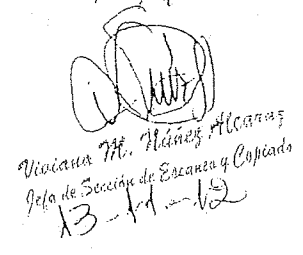 Viviana M. Núñez Alcaraz
Jefa de Sección de Escaneo y Copiado
13-11-12